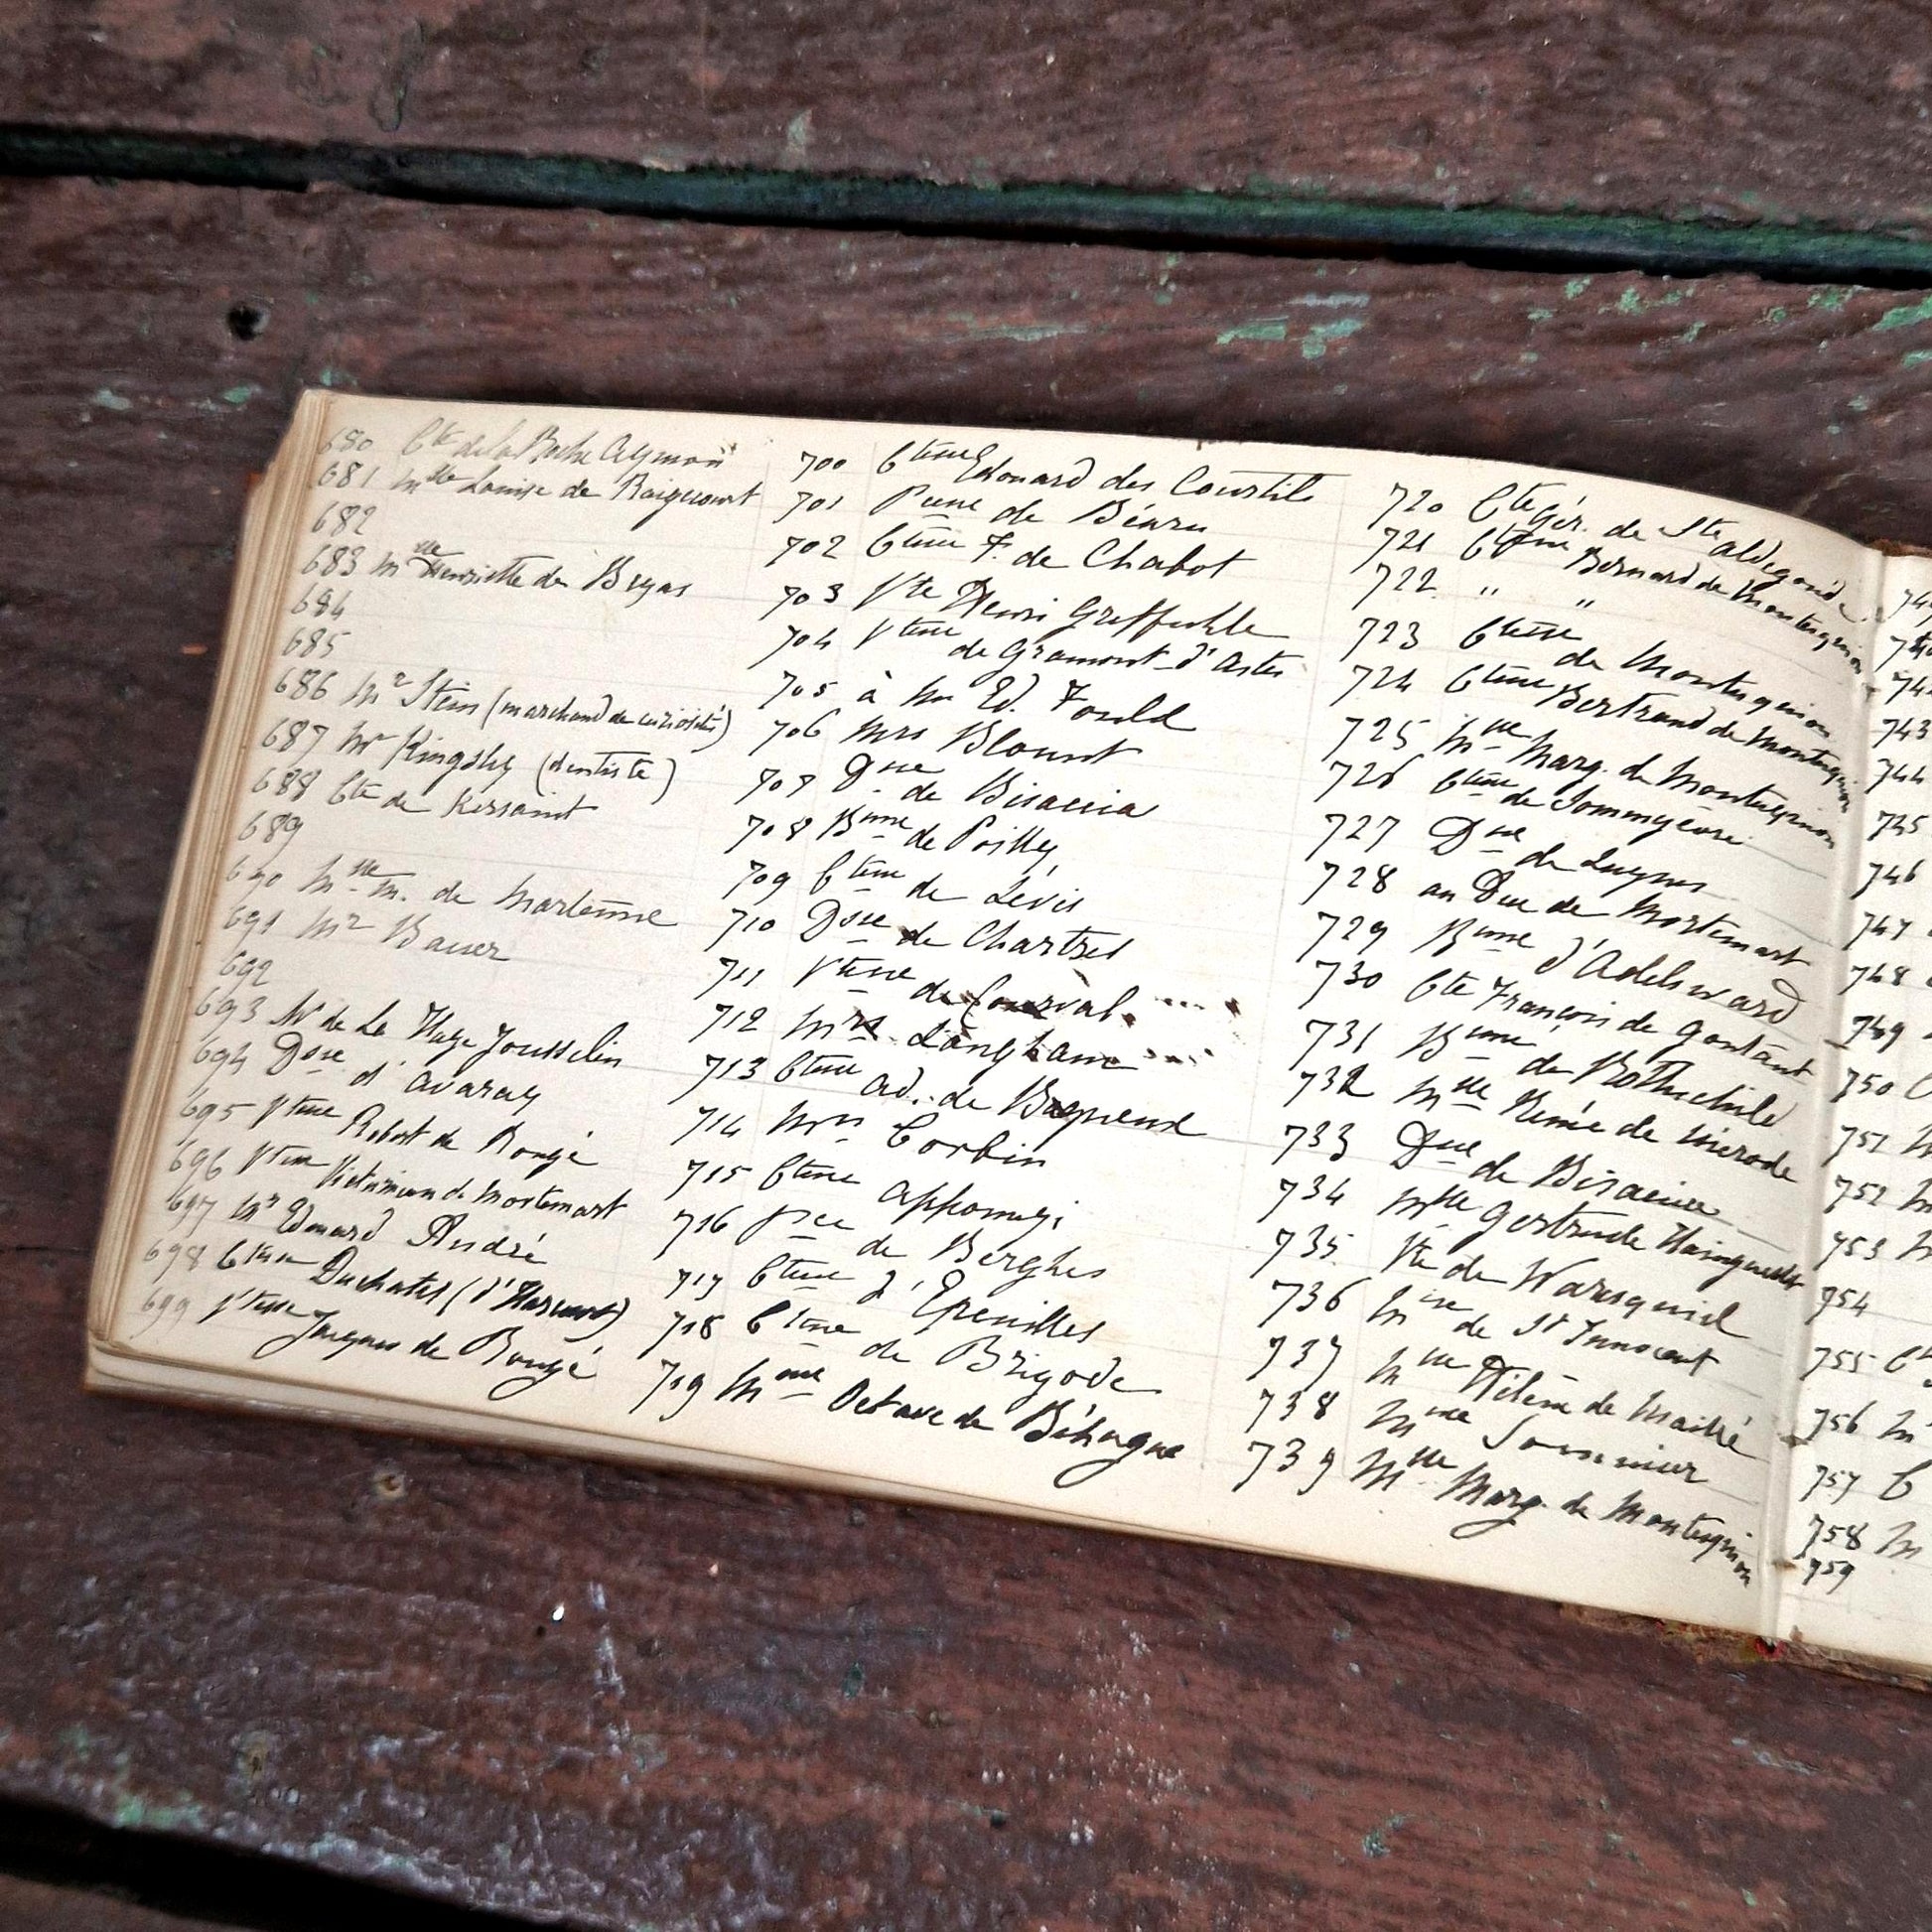 680 Cte de la Roche Aymon
681 Mlle Louise de Raigecourt
682
683 Mlle Henriette de Bryas
684
685
686 Mr Stein (marchand de curiosités)
687 Mr Kingsley (dentiste)
688 Cte de Kersaint
689
690 Mlle M. de Marlemme
691 Mr Bauer
692
693 Mr de La Haye Jousselin
694 Dsse d'Avaray
695 Vtesse Robert de Rougé
696 Vtesse Victurnien de Mortemart
697 Mr Edouard André
698 Ctesse Duchatel (d'Harcourt)
699 Vtesse Jacques de Rougé
700 Ctesse Edouard des Courtils
701 Pcesse de Béarn
702 Ctesse F. de Chabot
703 Vte Henri Greffuhle
704 Vtesse de Gramont d'Aster
705 à Mr Ed. Fould
706 Mrs Blount
707 Dsse de Bisaccia
708 Bnne de Poilly
709 Ctesse de Lévis
710 Dsse de Chartres
711 Vtesse de Courval
712 Mrs Langham
713 Ctesse Ad. de
714 Mrs Corbin
715 Ctesse Apponyi
716 Pce de Berghes
717 Ctesse d'Epenilles
718 Ctesse de Brigode
719 Mme Octave de Béhague
720 Cte Gér. de Ste Aldegonde
721 Ctesse Bernard de Montesquiou
722 " "
723 Ctesse de Montesquiou
724 Ctesse Bertrand de Montesquiou
725 Mlle Marg. de Montesquiou
726 Ctesse de Sommyèvre
727 Dsse de Luynes
728 au Duc de Mortemart
729 Bnne d'Adelsward
730 Cte François de Gontaut
731 Bnne de Rothschild
732 Mlle Renée de Mérode
733 Dsse de Bisaccia
734 Mlle Gertrude Hainguerlot
735 Vte de Waresquiel
736 Mise de St Innocent
737 Mlle Hélène de Maillé
738 Mme Sommier
739 Mlle Marg. de Montesquiou
743
744
745
746
747
748
749
750
751
752
753
754
755
756
757
758
759